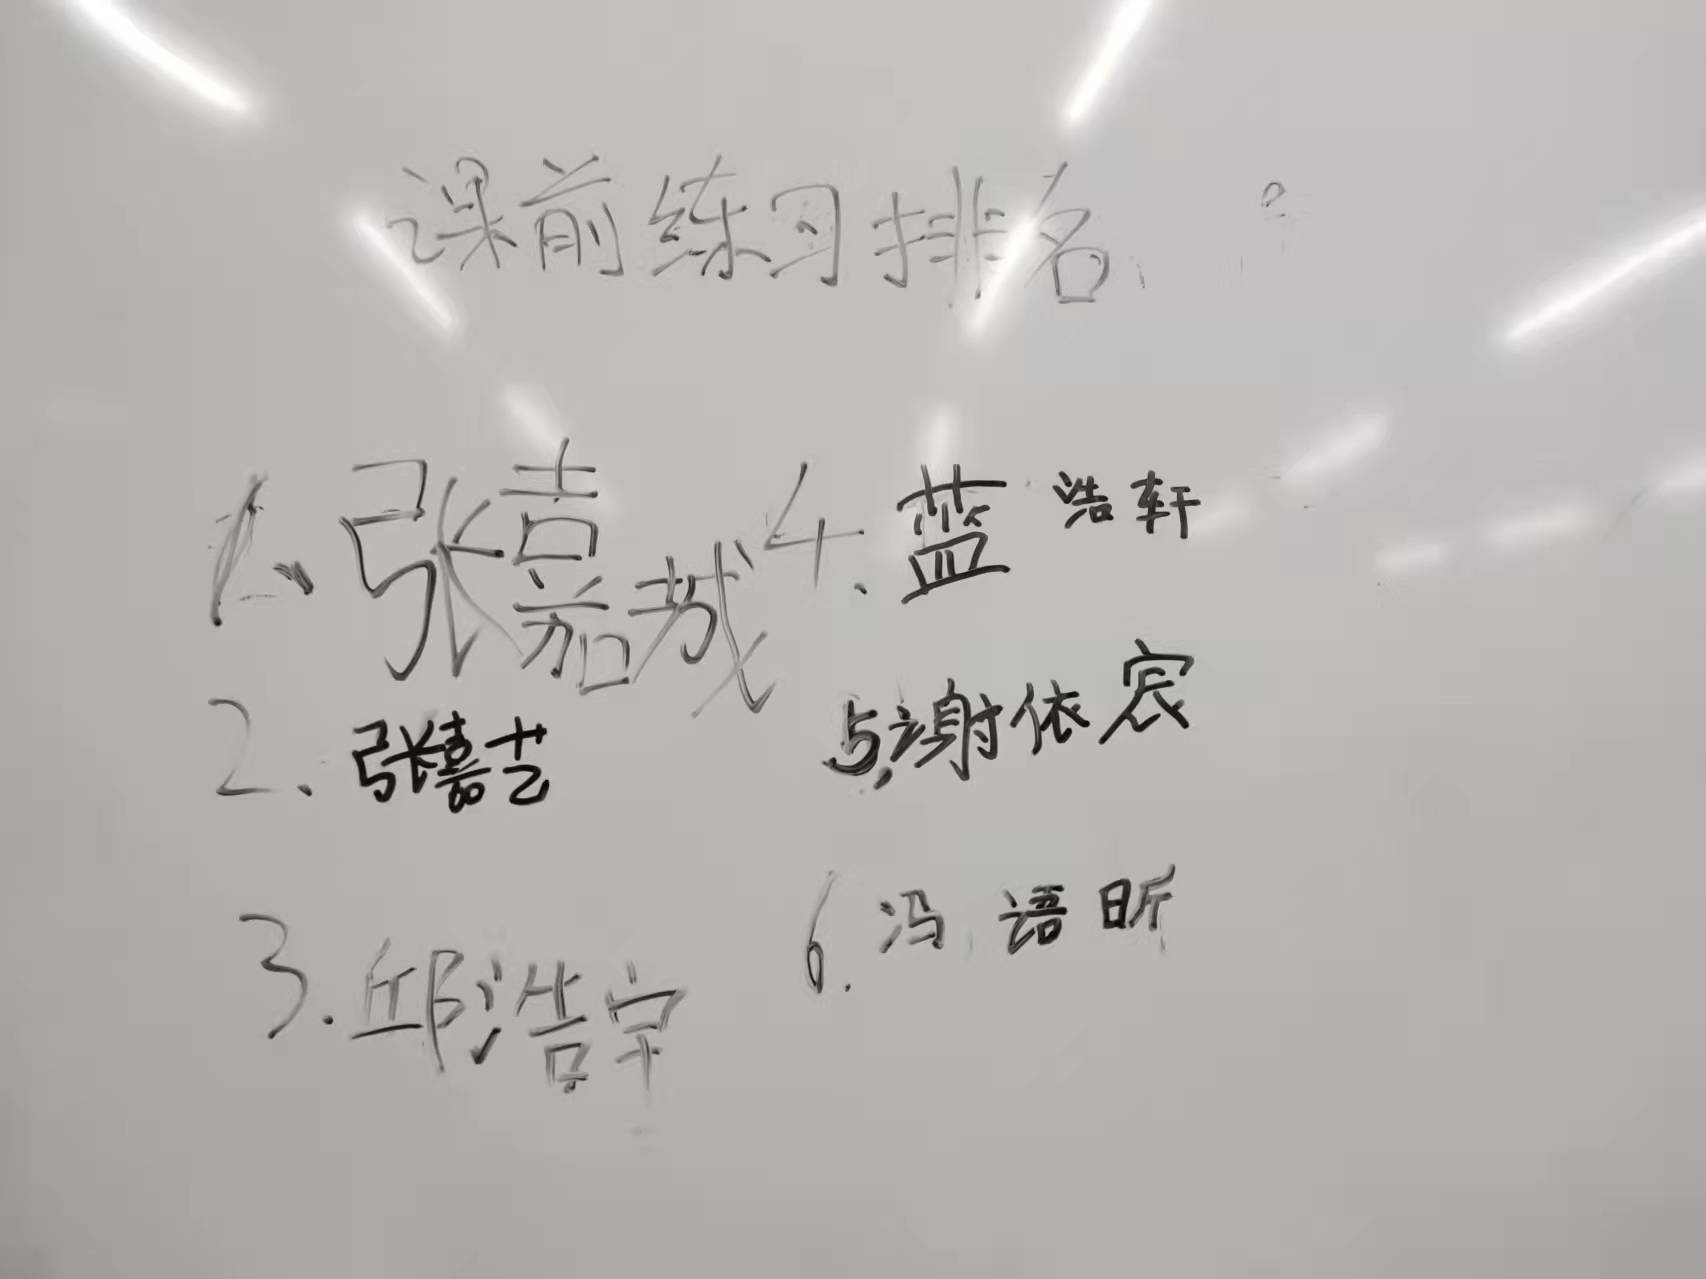 课前练习排名
1、张嘉
2、张嘉艺
3.邱浩宇
4、蓝浩轩
5,谢依宸
6.冯语昕